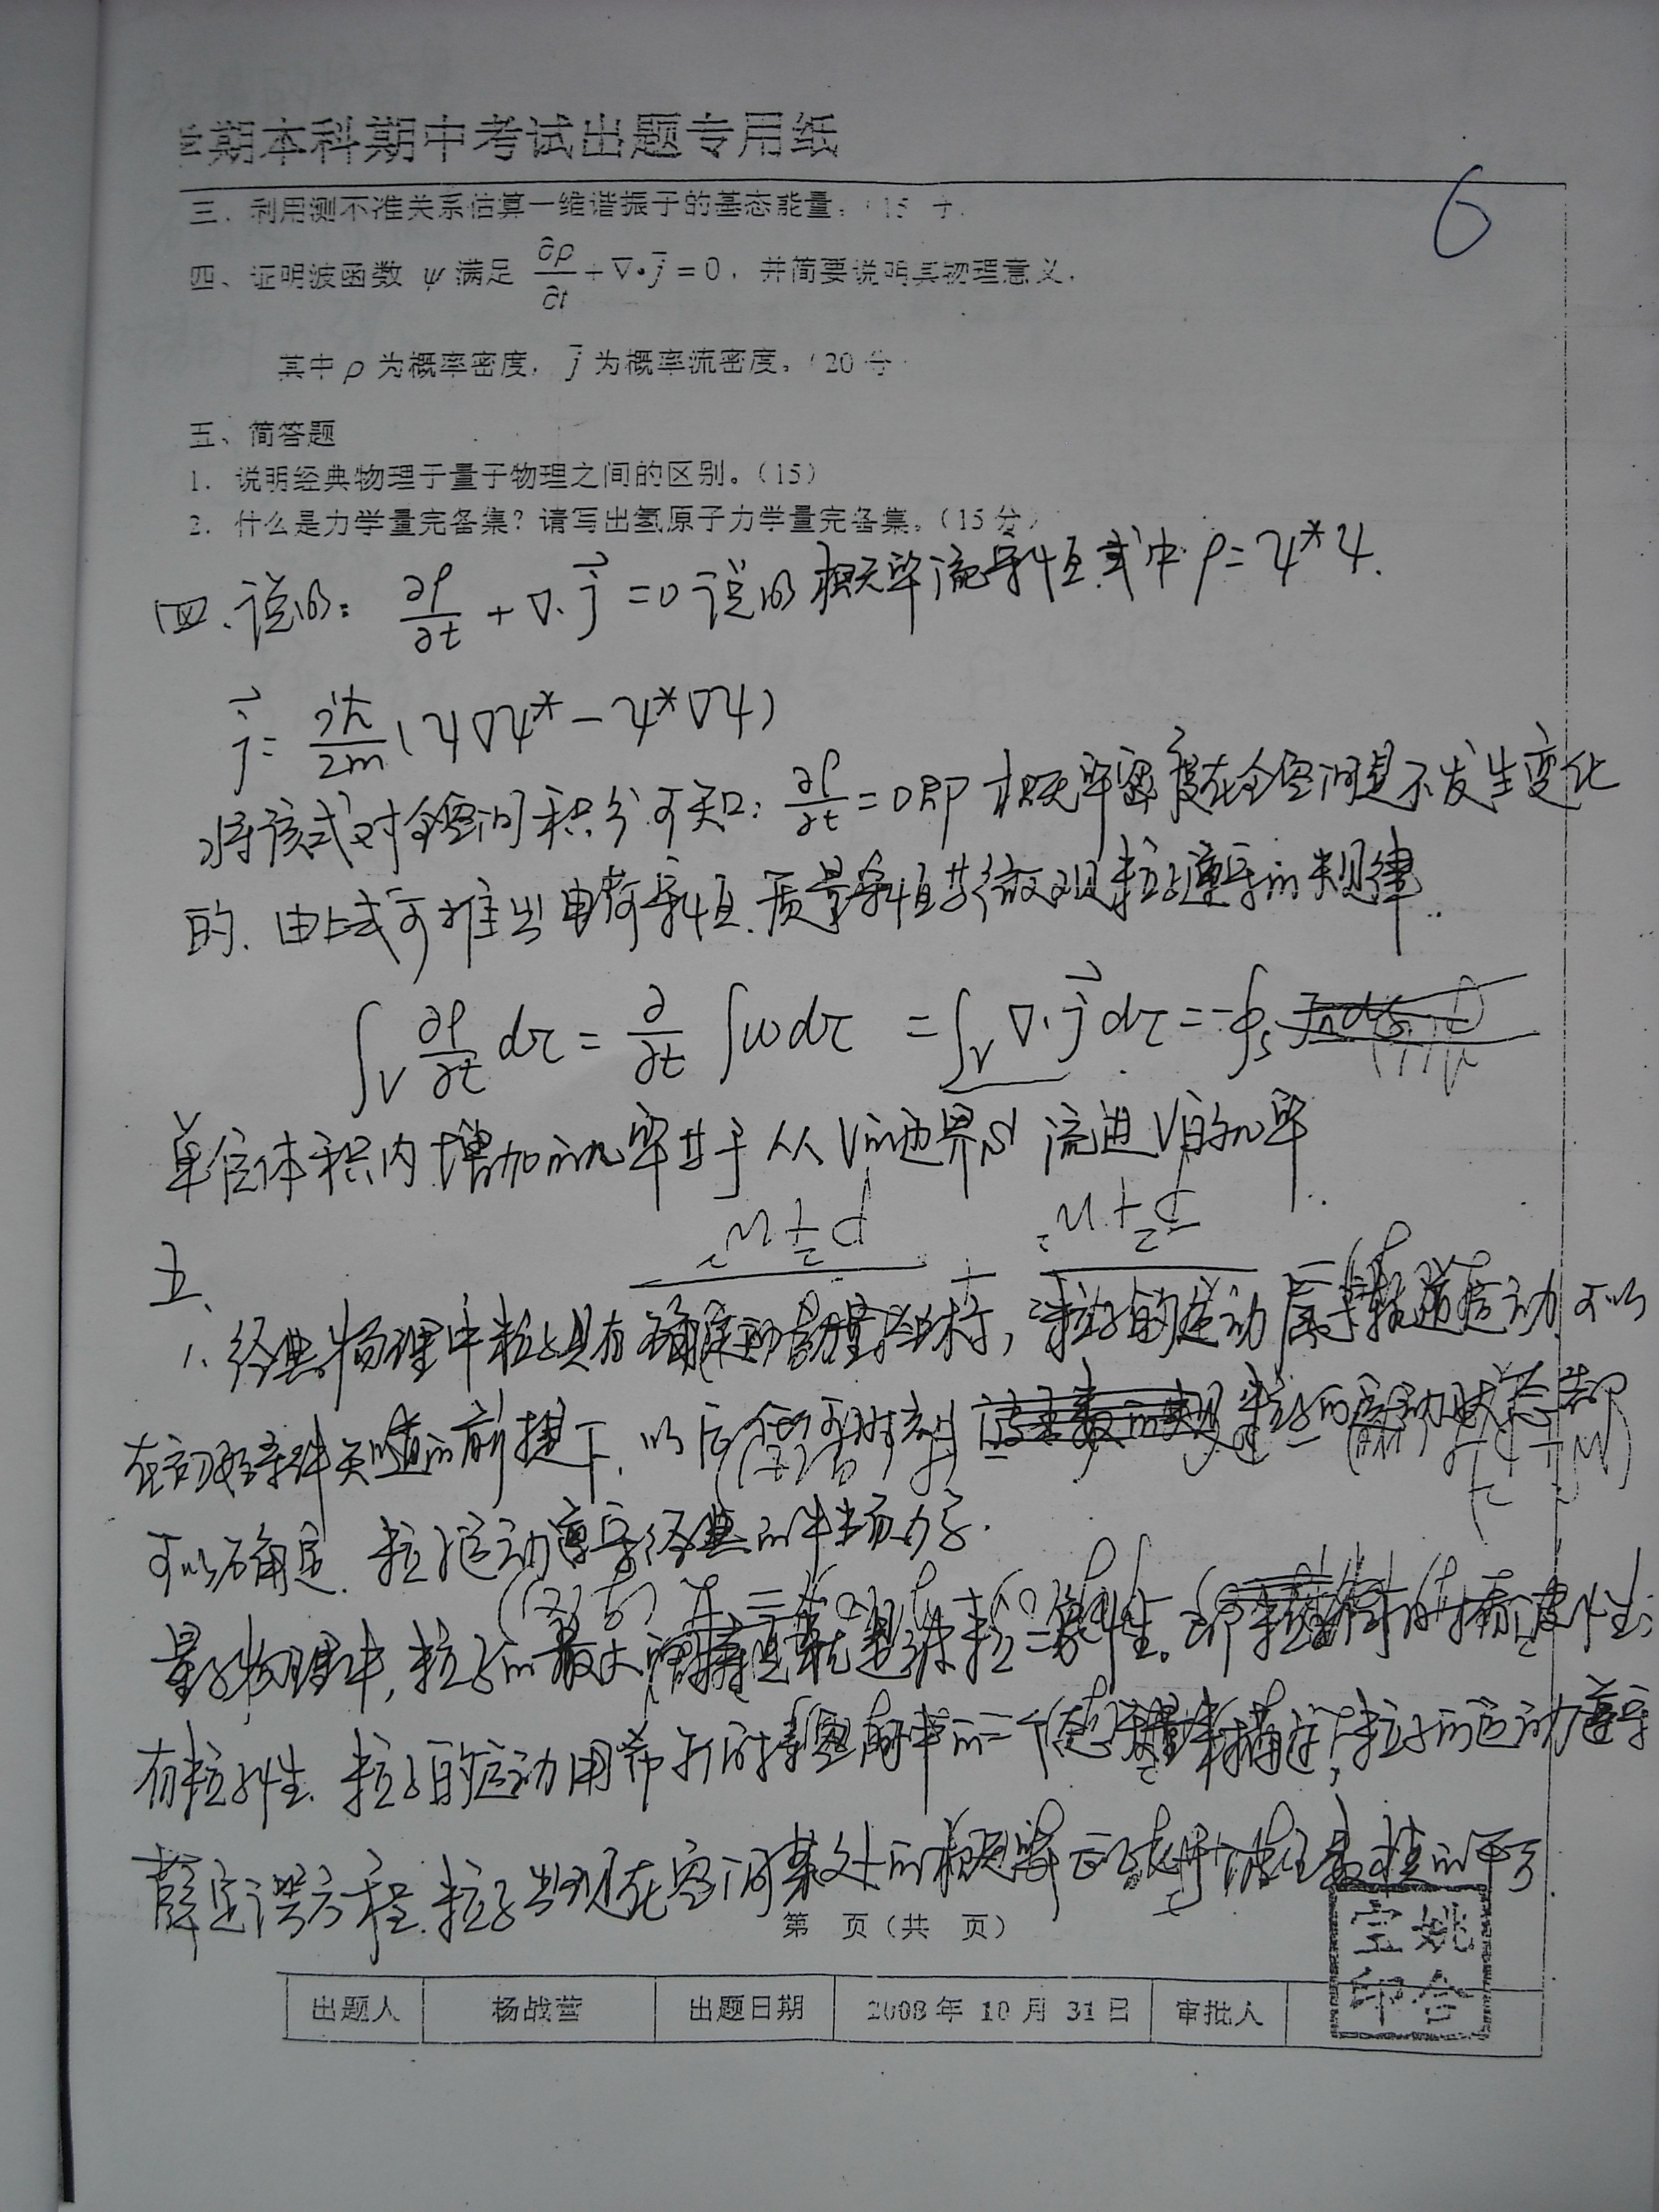 期本科期中考试出题专用纸
6
三、利用测不准关系估算一维谐振子的基态能量。(15
四、证明波函数 ψ 满足 ∂ρ/∂t + ∇·j = 0，并简要说明其物理意义.
其中 ρ 为概率密度，j 为概率流密度。(20分
五、简答题
1. 说明经典物理于量子物理之间的区别。(15)
2. 什么是力学量完备集？请写出氢原子力学量完备集。(15分)
四、说明： ∂ρ/∂t + ∇·j⃗ = 0 说明概率流守恒.式中 ρ = ψ*ψ.
j⃗ = iħ/2m (ψ∇ψ* − ψ*∇ψ)
将该式对全空间积分可知: ∂ρ/∂t = 0 即概率密度在全空间是不发生变化
的. 由上式可推出电荷守恒.质量守恒等微观粒子遵守的规律.
∫V ∂ρ/∂t dτ = ∂/∂t ∫ω dτ = ∫V ∇·j⃗ dτ = -∮s
单位体积内增加的几率等于从V的边界S流进V的几率
五、
1. 经典物理中粒子具有确定的动量和坐标，粒子的运动属于轨道运动.可以
在初始条件知道的前提下.以后任何时刻粒子的运动状态都
可以确定. 粒子运动遵守经典的牛顿力学.
量子物理中,粒子的最大的特点就是波粒二象性.
有粒子性. 粒子的运动用希尔伯特空间中的一个态矢量来描述,粒子的运动遵守
薛定谔方程.粒子出现在空间某处的概率正比于波函数的平方.
第 页（共 页）
出题人 杨战营 出题日期 2008年 10月 31日 审批人
宝姚
印合